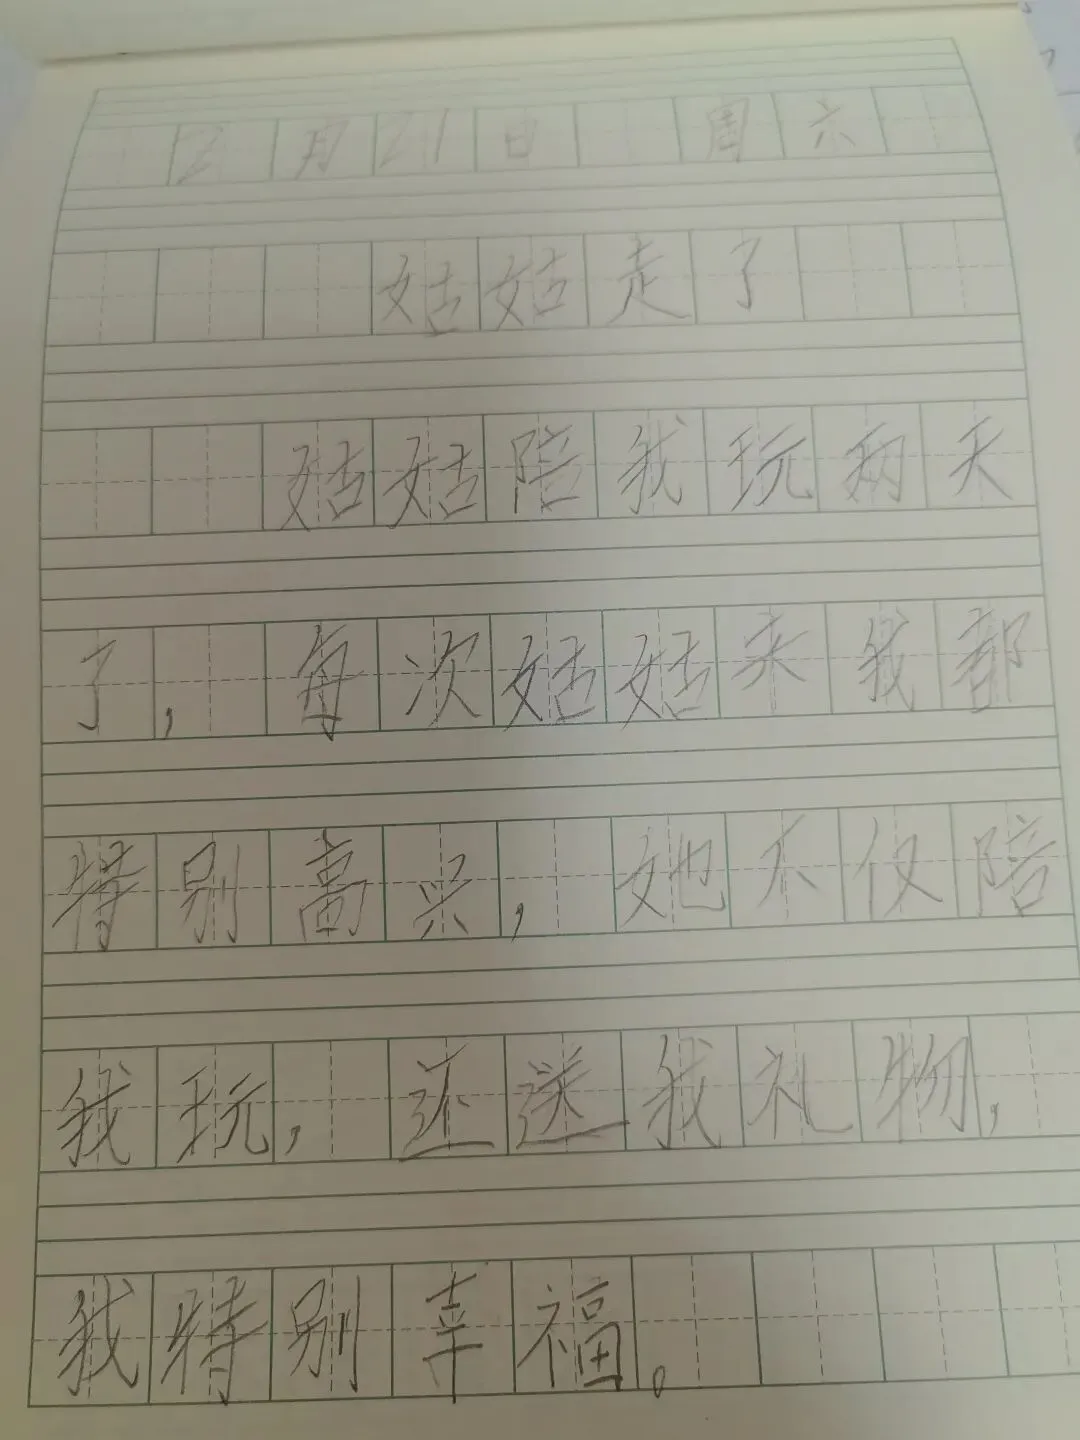 2月21日 周六
姑姑走了
姑姑陪我玩两天
了，每次姑姑来我都
特别高兴，她不仅陪
我玩，还送我礼物，
我特别幸福。